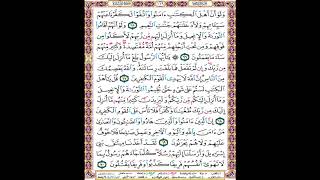 وَلَوْ أَنَّ أَهْلَ ٱلْكِتَٰبِ ءَامَنُوا۟ وَٱتَّقَوْا۟ لَكَفَّرْنَا عَنْهُمْ
سَيِّـَٔاتِهِمْ وَلَأَدْخَلْنَٰهُمْ جَنَّٰتِ ٱلنَّعِيمِ ٦٥ وَلَوْ أَنَّهُمْ أَقَامُوا۟
ٱلتَّوْرَىٰةَ وَٱلْإِنجِيلَ وَمَآ أُنزِلَ إِلَيْهِم مِّن رَّبِّهِمْ لَأَكَلُوا۟ مِن
فَوْقِهِمْ وَمِن تَحْتِ أَرْجُلِهِم مِّنْهُمْ أُمَّةٌ مُّقْتَصِدَةٌ وَكَثِيرٌ مِّنْهُمْ
سَآءَ مَا يَعْمَلُونَ ٦٦ يَٰٓأَيُّهَا ٱلرَّسُولُ بَلِّغْ مَآ أُنزِلَ إِلَيْكَ
مِن رَّبِّكَ وَإِن لَّمْ تَفْعَلْ فَمَا بَلَّغْتَ رِسَالَتَهُۥ وَٱللَّهُ يَعْصِمُكَ
مِنَ ٱلنَّاسِ إِنَّ ٱللَّهَ لَا يَهْدِى ٱلْقَوْمَ ٱلْكَٰفِرِينَ ٦٧ قُلْ يَٰٓأَهْلَ
ٱلْكِتَٰبِ لَسْتُمْ عَلَىٰ شَىْءٍ حَتَّىٰ تُقِيمُوا۟ ٱلتَّوْرَىٰةَ وَٱلْإِنجِيلَ
وَمَآ أُنزِلَ إِلَيْكُم مِّن رَّبِّكُمْ وَلَيَزِيدَنَّ كَثِيرًا مِّنْهُم
مَّآ أُنزِلَ إِلَيْكَ مِن رَّبِّكَ طُغْيَٰنًا وَكُفْرًا فَلَا تَأْسَ عَلَى ٱلْقَوْمِ ٱلْكَٰفِرِينَ ٦٨
إِنَّ ٱلَّذِينَ ءَامَنُوا۟ وَٱلَّذِينَ هَادُوا۟ وَٱلصَّٰبِـُٔونَ وَٱلنَّصَٰرَىٰ
مَنْ ءَامَنَ بِٱللَّهِ وَٱلْيَوْمِ ٱلْءَاخِرِ وَعَمِلَ صَٰلِحًا فَلَا خَوْفٌ
عَلَيْهِمْ وَلَا هُمْ يَحْزَنُونَ ٦٩ لَقَدْ أَخَذْنَا مِيثَٰقَ بَنِىٓ إِسْرَٰٓءِيلَ
وَأَرْسَلْنَآ إِلَيْهِمْ رُسُلًا كُلَّمَا جَآءَهُمْ رَسُولٌۢ بِمَا
لَا تَهْوَىٰٓ أَنفُسُهُمْ فَرِيقًا كَذَّبُوا۟ وَفَرِيقًا يَقْتُلُونَ ٧٠